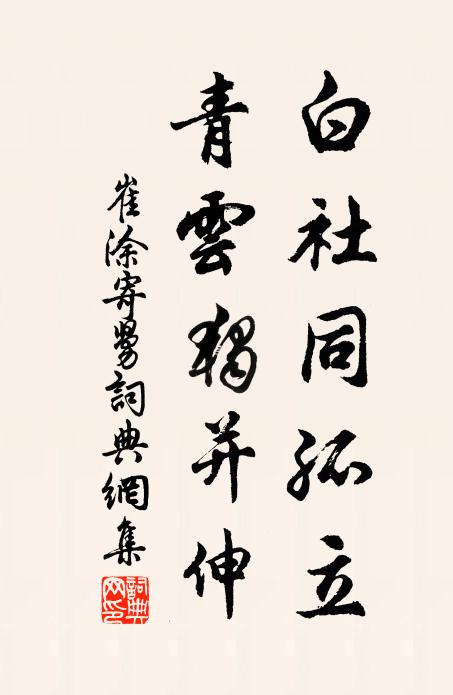 白社同孤立
青雲獨并伸
崔涂寄舅詞典網集
詞典网印